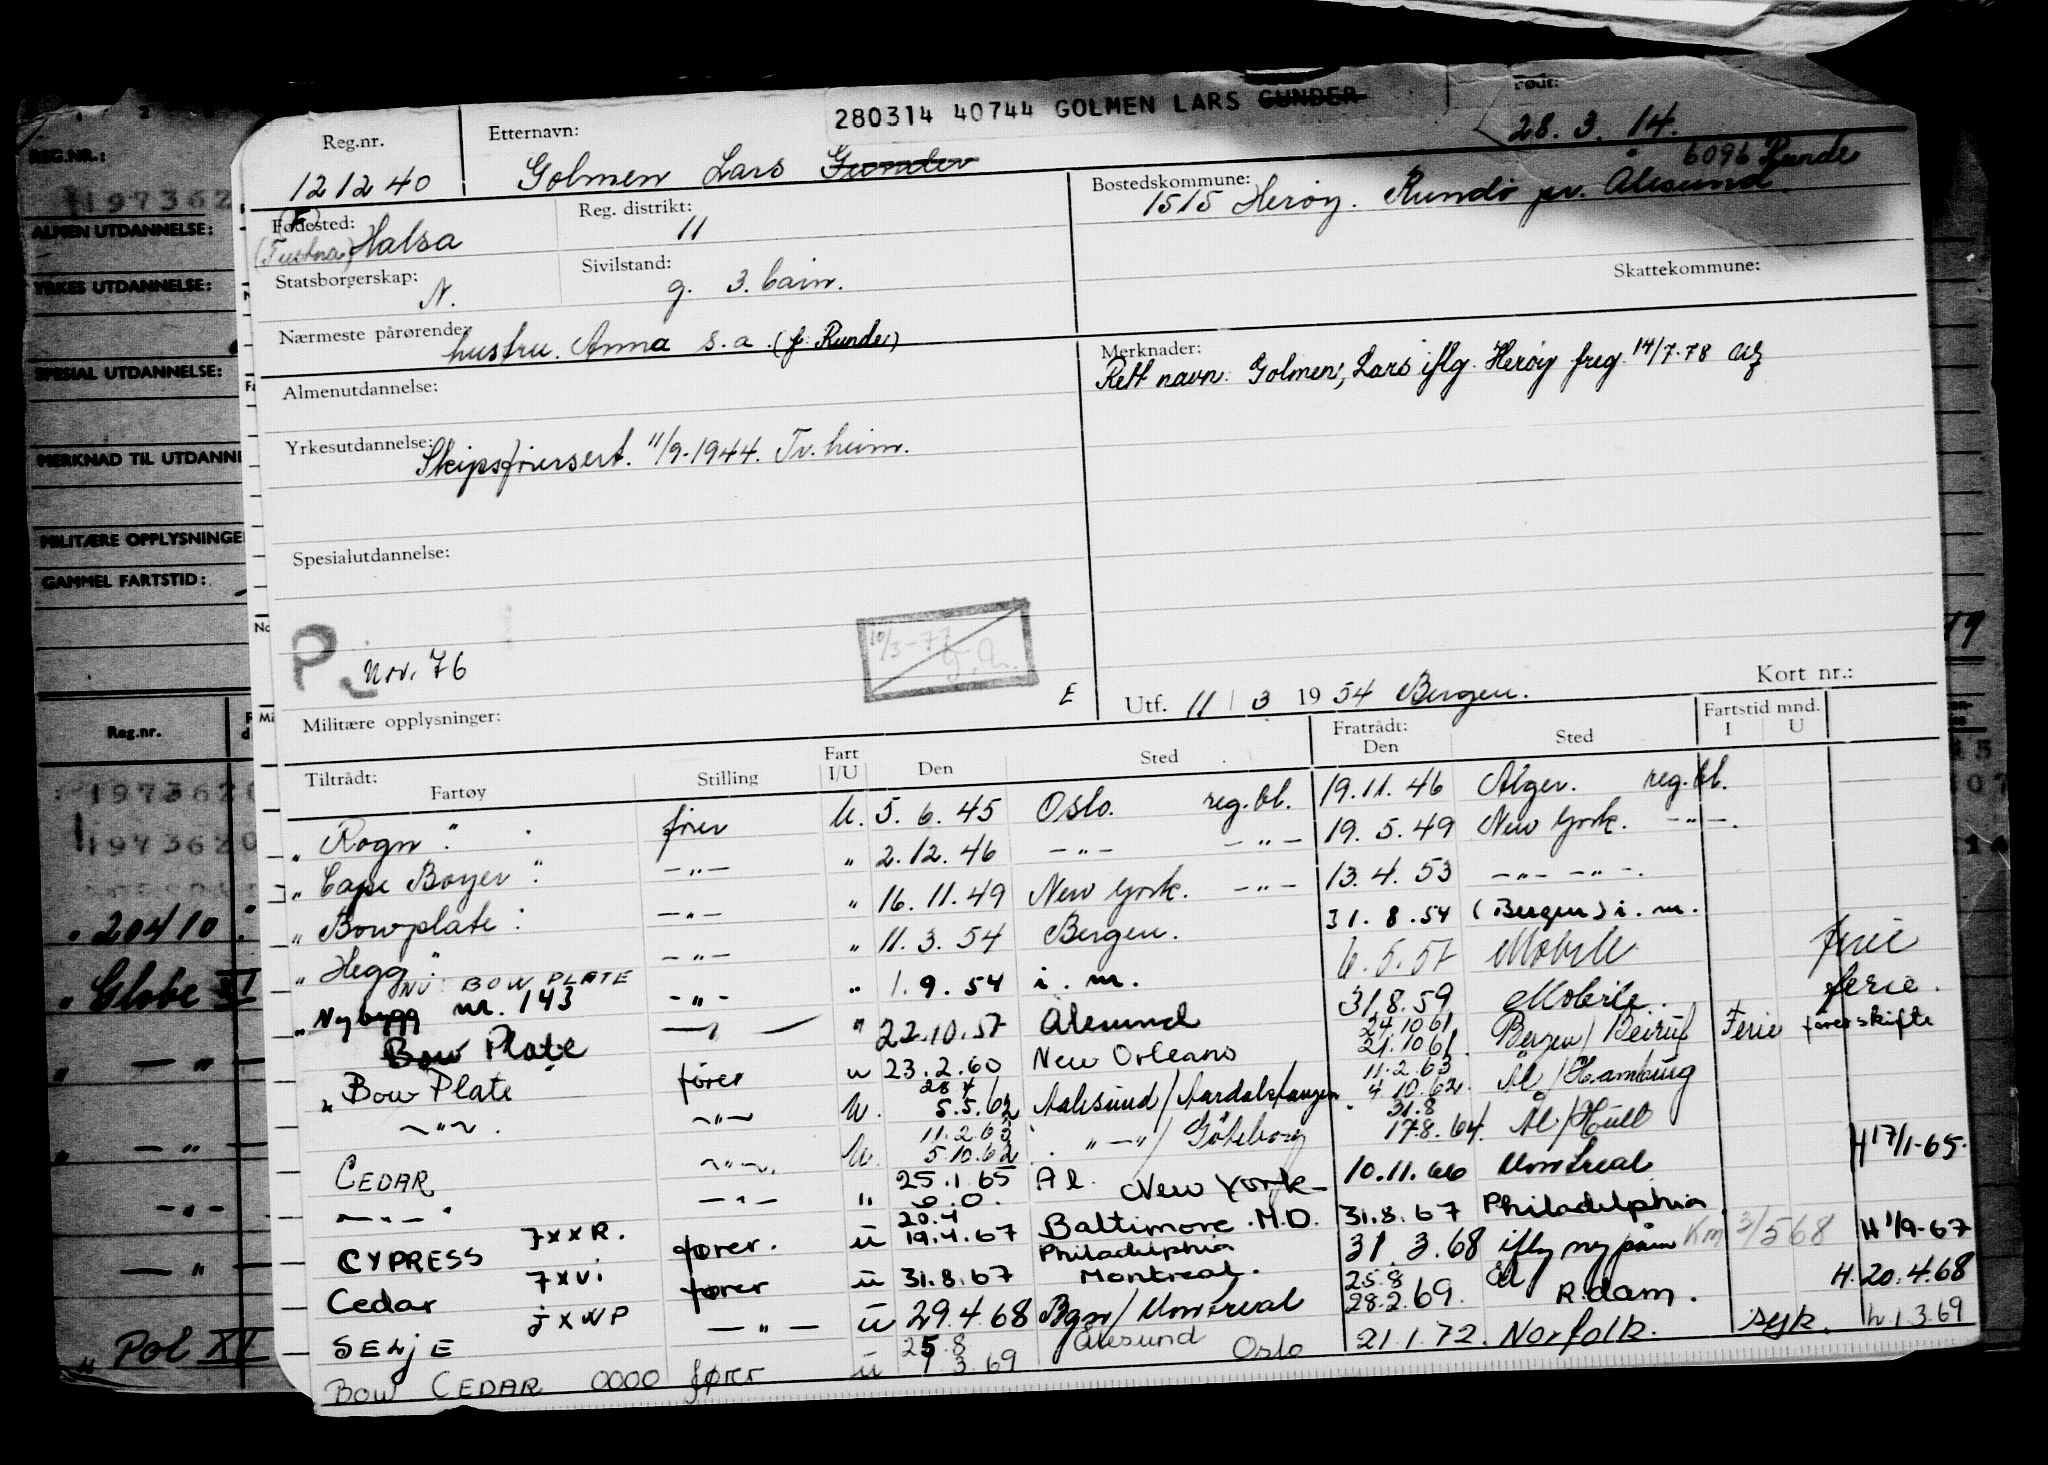 280314 40744 GOLMEN LARS GUNDER
Født:
28. 3. 14.
Reg.nr.
121240
Etternavn:
Golmen Lars Gunder
Bostedskommune:
1515 Herøy. Rundö pr. Ålesund
6096 Runde
Fødested:
(Tustna) Halsa
Reg. distrikt:
11
Statsborgerskap:
N.
Sivilstand:
g. 3. barn.
Skattekommune:
Nærmeste pårørende:
hustru. Anna s.a. (f. Runde)
Merknader:
Rett navn: Golmen, Lars iflg. Herøy freg. 14/7-78
Almenutdannelse:
Yrkesutdannelse:
Skipsførersert. 11/9-1944. Tr. heim.
Spesialutdannelse:
P
Nov. 76
10/3-77
E
Utf. 11 / 3 1954 Bergen.
Kort nr.:
Militære opplysninger:
Tiltrådt:
Fartøy Stilling Fart I/U Den Sted Fratrådt: Den Sted Fartstid mnd. I U
" Rogn " fører U. 5. 6. 45 Oslo. reg.bl. 19.11. 46 Alger. reg.bl.
" Cape Boyer " —"— " 2.12. 46 —"— —"— 19. 5. 49 New York. —"—.
" Bowplate : —"— " 16. 11. 49 New York. —"— 13. 4. 53 —"— —"—.
" Hegg " —"— " 11. 3. 54 Bergen. 31. 8. 54 (Bergen) i. m.
NU: BOW PLATE
" Nybygg nr. 143 —"— " 1. 9. 54 i. m. 6. 5. 57 Mobile ferie
Bow Plate —"— " 22.10.57 Ålesund 31.8.59 Mobile. ferie.
" Bow Plate fører u 23. 2. 60 New Orleans 24.10 61 21.10 61 Bergen / Beirut Ferie førerskifte
—"—. —"— U. 28.4 5.5. 62 Aalesund / Aardalstangen 11.2.63 4.10.62 Ål / Hamburg
CEDAR —"— U. 11.2.63 5.10.62 —"— / Göteborg 31.8 17.8.64. Ål / Hull
—"— —"— " 25.1.65 Ål. New York 10.11.66 Montreal H 17/1-65.
CYPRESS JXXR. fører. u 20.4 19.4.67 Baltimore. M.D. 31.8.67 Philadelphia
Cedar JXVI fører u 31.8.67 Philadelphia Montreal. 31. 3.68 iflg ny påm Km 3/5 68 H 1/9-67
SELJE JXWP —"— u 29.4.68 Bgn / Montreal 25.8 28.2.69. Ål R.dam. H. 20.4.68
BOW CEDAR 0000 fører u 25.8 1.3.69 Ålesund Oslo 21.1.72. Norfolk. syk. h. 1.3.69
REG.NR.:
197362
ALMEN UTDANNELSE:
YRKES UTDANNELSE:
SPESIAL UTDANNELSE:
MERKNAD TIL UTDANNE
MILITÆRE OPPLYSNINGE
GAMMEL FARTSTID:
Reg.nr.
1973620
1973620
" 20410
" Globe XI
" — " —
" — " —
— " —
— " —
" Pol XI